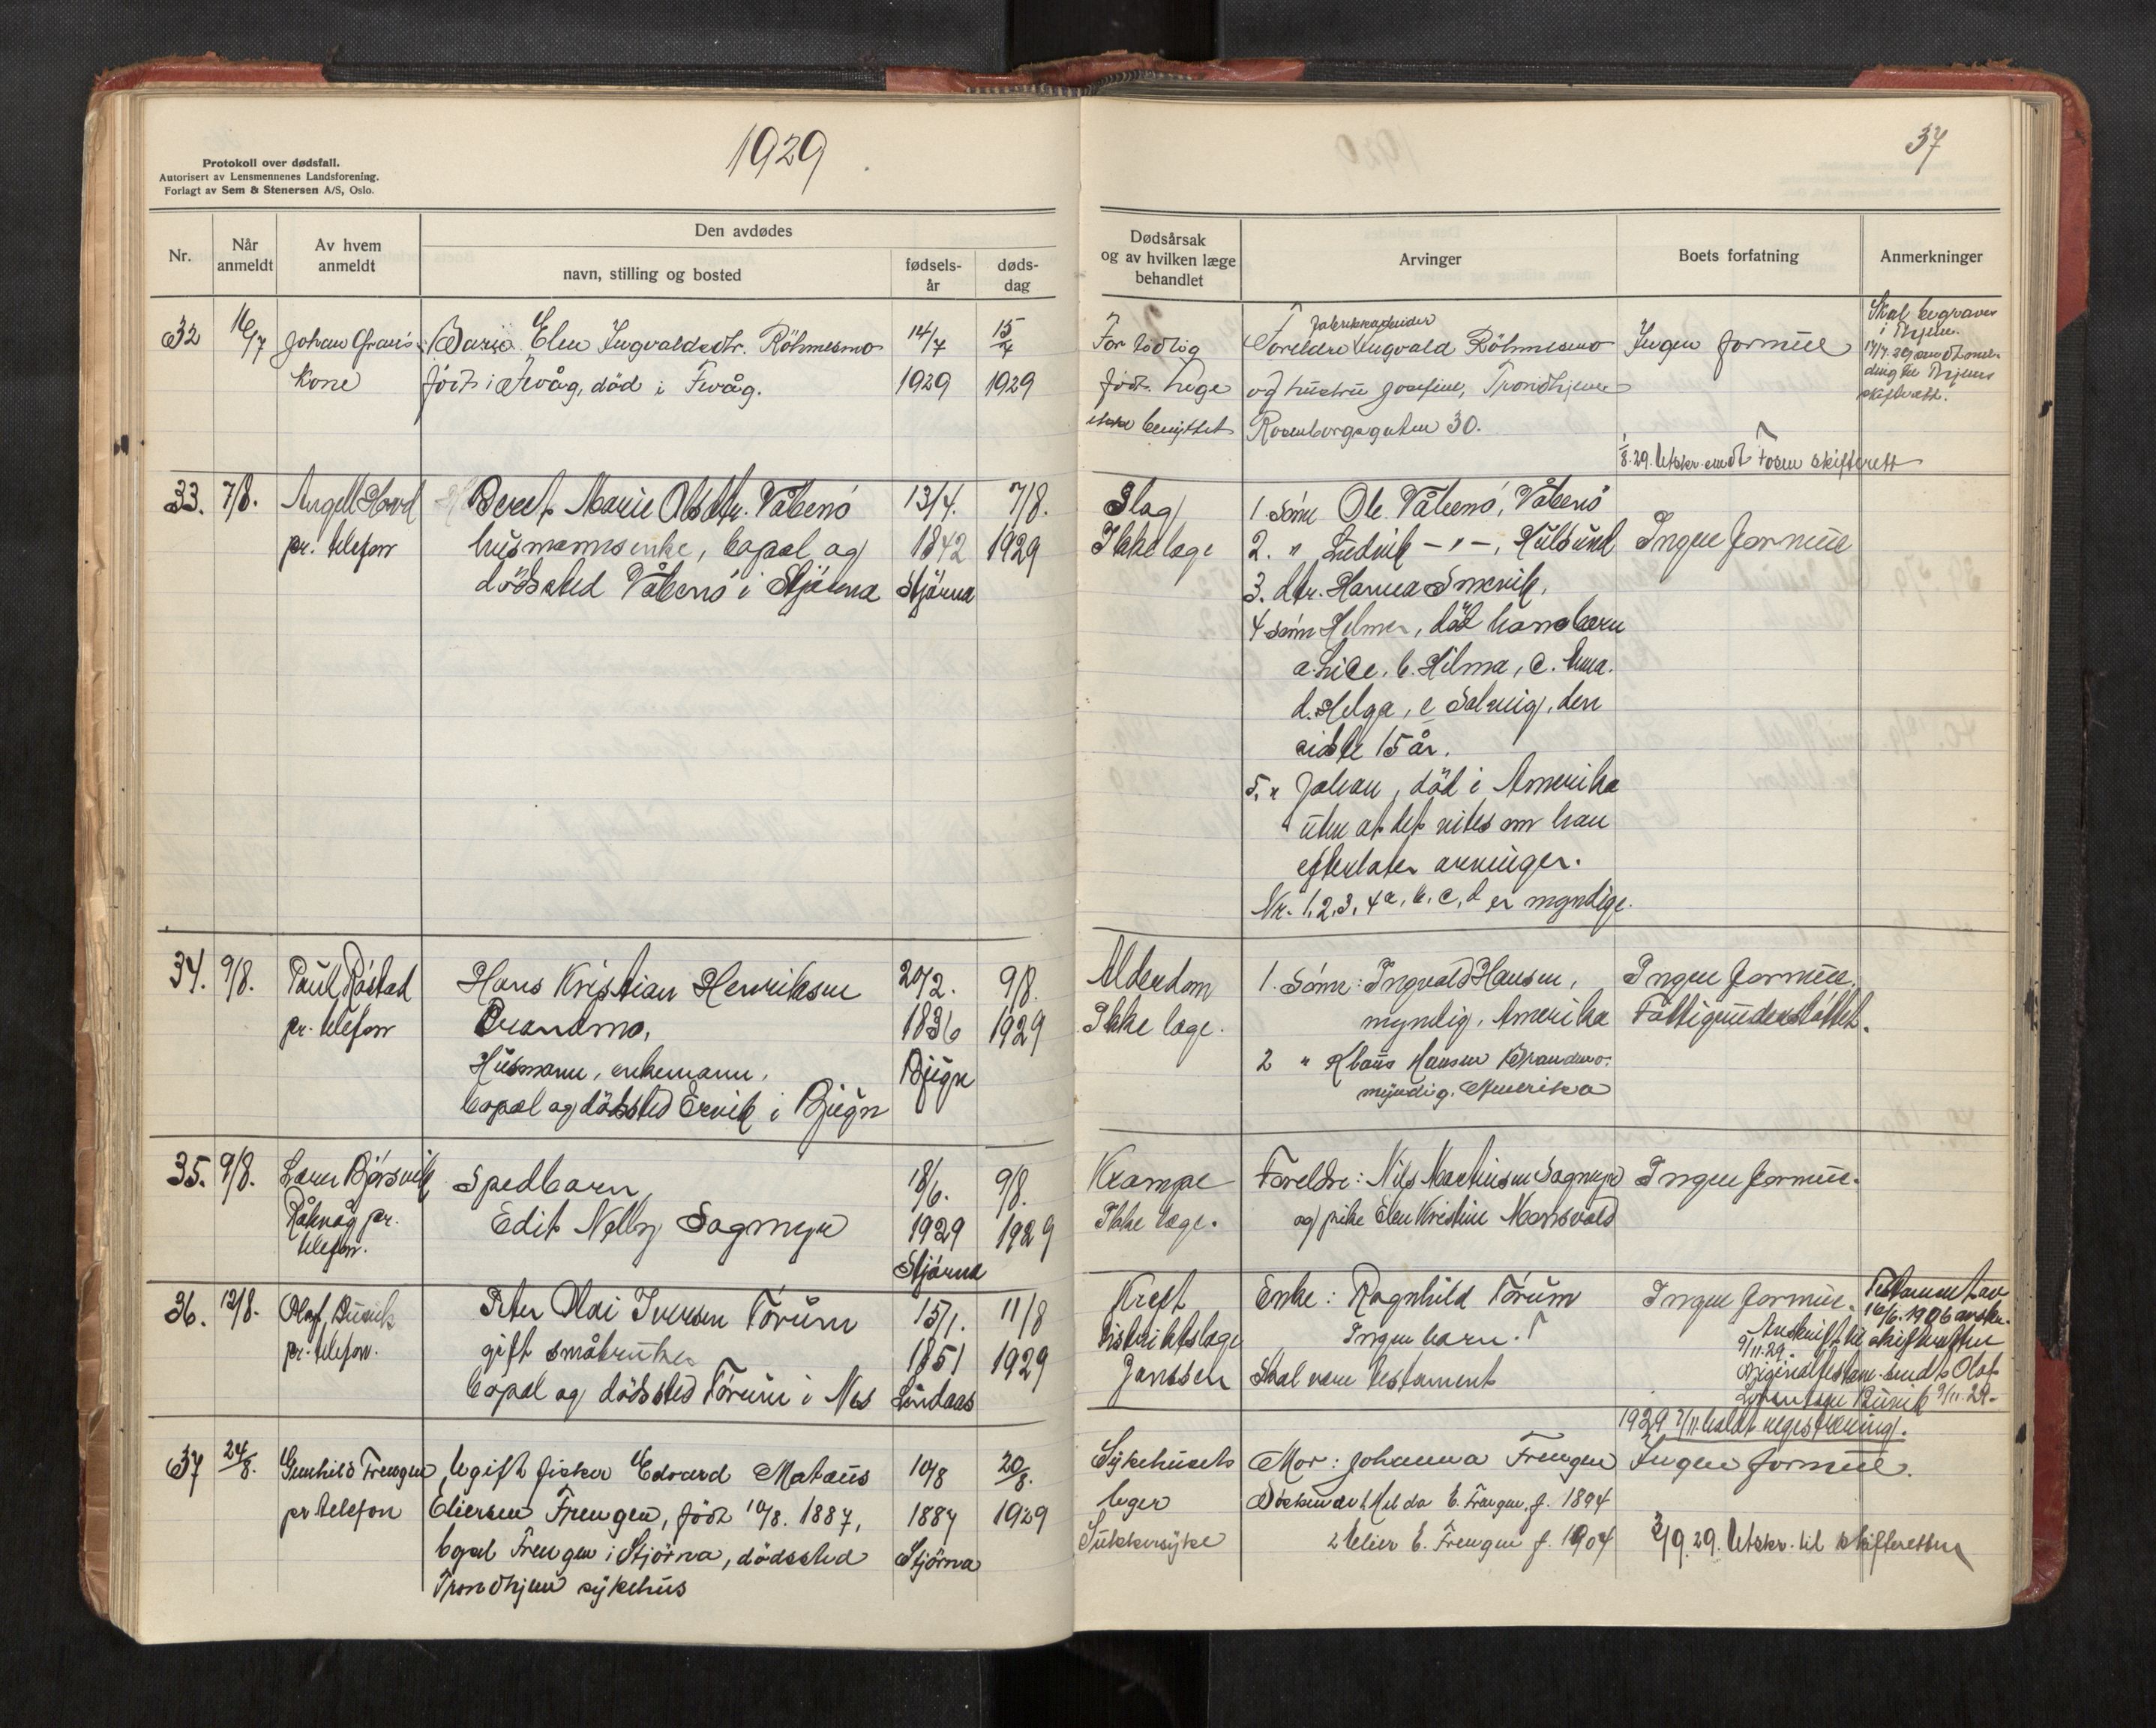 1929
37
Protokoll over dødsfall.
Autorisert av Lensmennenes Landsforening.
Forlagt av Sem & Stenersen A/S, Oslo.
Nr.
Når anmeldt
Av hvem anmeldt
Den avdødes
navn, stilling og bosted
fødsels-år
døds-dag
Dødsårsak og av hvilken læge behandlet
Arvinger
Boets forfatning
Anmerkninger
32 16/7 Johan
Kone
Ellen Ingvaldsdtr. Röhmesmo
født i Fevåg, död i Fevåg.
14/7
1929
15/7
1929
For tidlig
født. Lege
ikke benyttet
Fabrikkarbeider
Foreldre Ingvald Röhmesmo
og hustru Josefine, Trondhjem
Rosenborgsgaten 30.
Ingen formue
Skal begraves
i Trhjem.
skifterett.
1/8.29. Utskr. sendt Fosen skifterett
33. 7/8. Angell Hovd
pr. telefon
Beret Marie Olsdtr. Våbenö
husmannsenke, bopæl og
dödssted Våbenö i Stjörna
13/4.
1842
Stjörna
7/8.
1929
Slag
Ikke læge
1. Sönn Ole Våbenö, Våbenö
2. " Ludvik - " -, Hülsund
3. dtr. Hanna Smevik,
4 sönn Helmer, död hans barn
a. b. Hilma, c.
d. Helga, e Solveig, den
siste 15 år.
5. " Johan, död i Amerika
uten at det vites om han
efterlater arvinger.
Nr. 1, 2, 3, 4 a, b, c, d er myndige.
Ingen formue
34. 9/8. Paul Röstad
pr. telefon
Hans Kristian Henriksen
Brandmo,
Husmann, enkemann,
bopæl og dödssted Ervik i Bjugn
20/2.
1836
Bjugn
9/8.
1929
Alderdom
Ikke læge.
1. Sönn: Ingvald Hansen,
myndig, Amerika
2 " Klaus Hansen Brandmo
myndig. Amerika
Ingen formue.
Fattigunderstöttet.
35. 9/8. Lærer Björsvik
Råkvåg pr.
telefon.
Spedbarn
Edit Nelly Sagmyr
18/6.
1929
Stjörna
9/8.
1929
Krampe
Ikke læge.
Foreldre: Nils Martinsen Sagmyr
og pike Elen Kristine Monsvold
Ingen formue.
36. 12/8. Olaf Buvik
pr. telefon.
Peter Olai Iversen Förum
gift småbruker
bopæl og dödssted Förum i Nes
15/1.
1851
Lindaas
11/8
1929
Kreft
Distriktslæge
Janssen
Enke: Ragnhild Förum
Ingen barn.
Skal være testament
Ingen formue.
Testament av
16/6.1906
Avskrift til skifteretten
9/11.29.
Originaltestam. sendt Olaf
Lorentsen Buvik 9/11.29.
1929 7/11. holdt registrering.
37 24/8. Gunhild Frengen
pr telefon
Ugift fisker Edvard Mataus
Eliersen Frengen, född 10/8. 1887,
bopel Frengen i Stjörna, dödssted
Trondhjem sykehus
10/8
1887
Stjörna
20/8.
1929
Sykehusets
leger
Sukkersyke
Mor: Johanna Frengen
Söskende 1 Hilda E. Frengen, f. 1894
2 Elier E. Frengen f. 1904
Ingen formue.
2/9.29. Utskr. til skifteretten